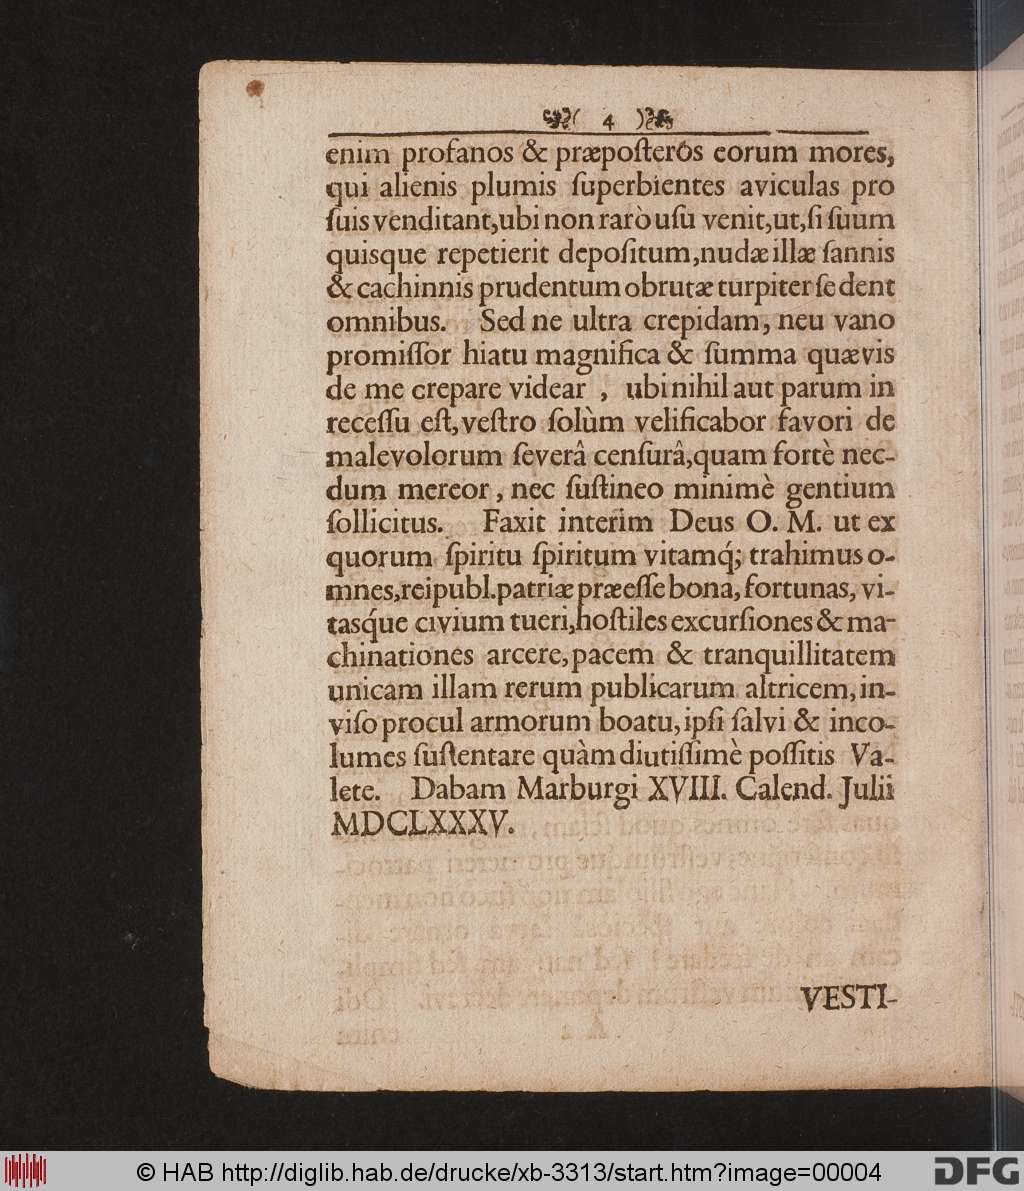 ( 4 )
enim profanos & præpoſterôs eorum mores,
qui alienis plumis ſuperbientes aviculas pro
ſuis venditant,ubi non rarò uſu venit,ut,ſi ſuum
quisque repetierit depoſitum,nudæ illæ ſannis
& cachinnis prudentum obrutæ turpiter ſe dent
omnibus. Sed ne ultra crepidam, neu vano
promiſſor hiatu magnifica & ſumma quævis
de me crepare videar , ubi nihil aut parum in
receſſu eſt, veſtro ſolùm velificabor favori de
malevolorum ſeverâ cenſurâ,quam fortè nec-
dum mereor, nec ſuſtineo minimè gentium
ſollicitus. Faxit interim Deus O. M. ut ex
quorum ſpiritu ſpiritum vitamq́; trahimus o-
mnes,reipubl.patriæ præeſſe bona, fortunas, vi-
tasq́ue civium tueri,hoſtiles excurſiones & ma-
chinationes arcere,pacem & tranquillitatem
unicam illam rerum publicarum altricem, in-
viſo procul armorum boatu,ipſi ſalvi & inco-
lumes ſuſtentare quàm diutiſſimè poſſitis Va-
lete. Dabam Marburgi XVIII. Calend. Julii
MDCLXXXV.
VESTI-
© HAB http://diglib.hab.de/drucke/xb-3313/start.htm?image=00004
DFG